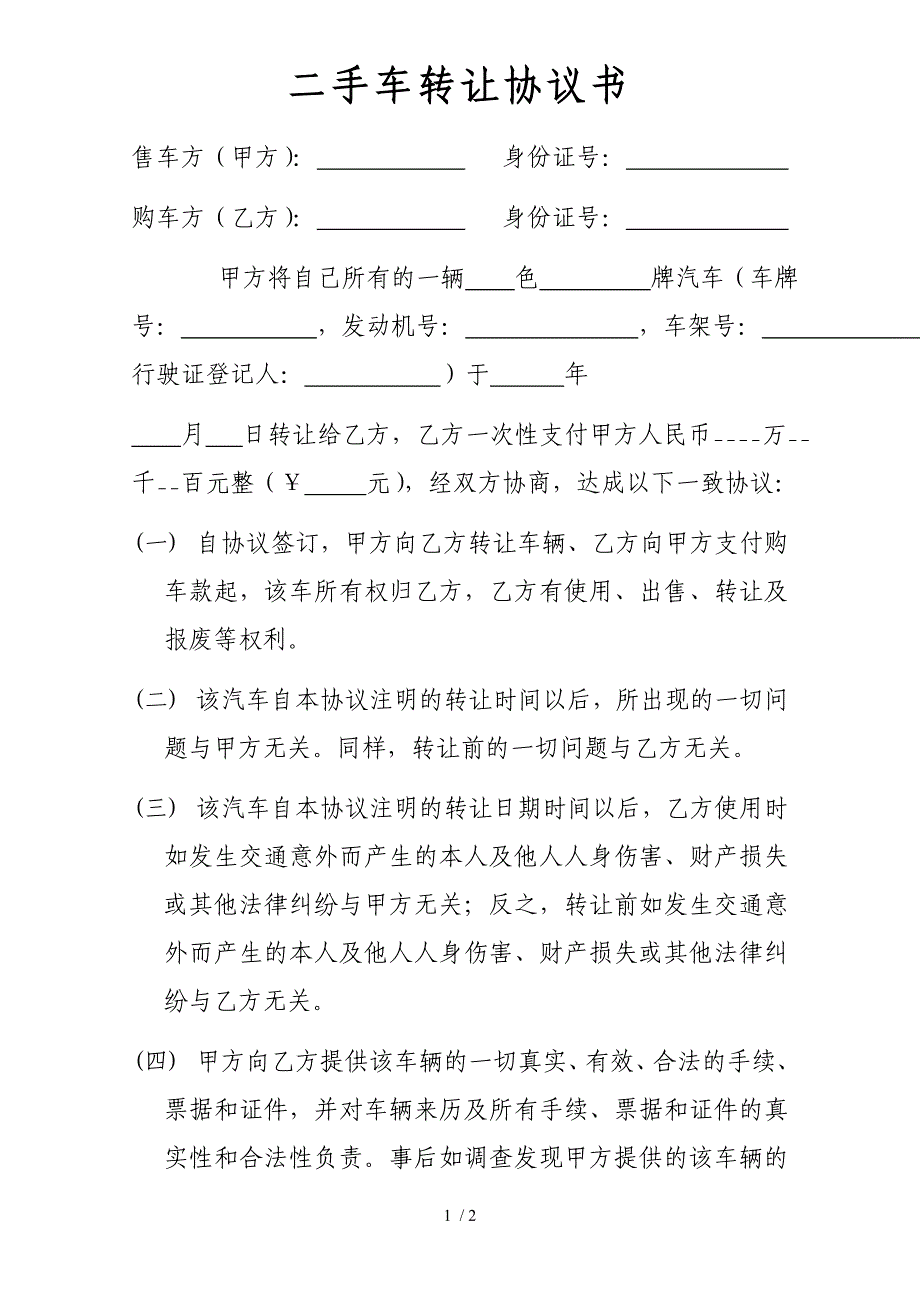 二手车转让协议书
售车方（甲方）：____________ 身份证号：_____________
购车方（乙方）：____________ 身份证号：_____________
甲方将自己所有的一辆____色_________牌汽车（车牌
号：___________，发动机号：______________，车架号：_____________
行驶证登记人：___________）于______年
____月___日转让给乙方，乙方一次性支付甲方人民币----万--
千--百元整（￥_____元），经双方协商，达成以下一致协议：
(一) 自协议签订，甲方向乙方转让车辆、乙方向甲方支付购
车款起，该车所有权归乙方，乙方有使用、出售、转让及
报废等权利。
(二) 该汽车自本协议注明的转让时间以后，所出现的一切问
题与甲方无关。同样，转让前的一切问题与乙方无关。
(三) 该汽车自本协议注明的转让日期时间以后，乙方使用时
如发生交通意外而产生的本人及他人人身伤害、财产损失
或其他法律纠纷与甲方无关；反之，转让前如发生交通意
外而产生的本人及他人人身伤害、财产损失或其他法律纠
纷与乙方无关。
(四) 甲方向乙方提供该车辆的一切真实、有效、合法的手续、
票据和证件，并对车辆来历及所有手续、票据和证件的真
实性和合法性负责。事后如调查发现甲方提供的该车辆的
1 / 2